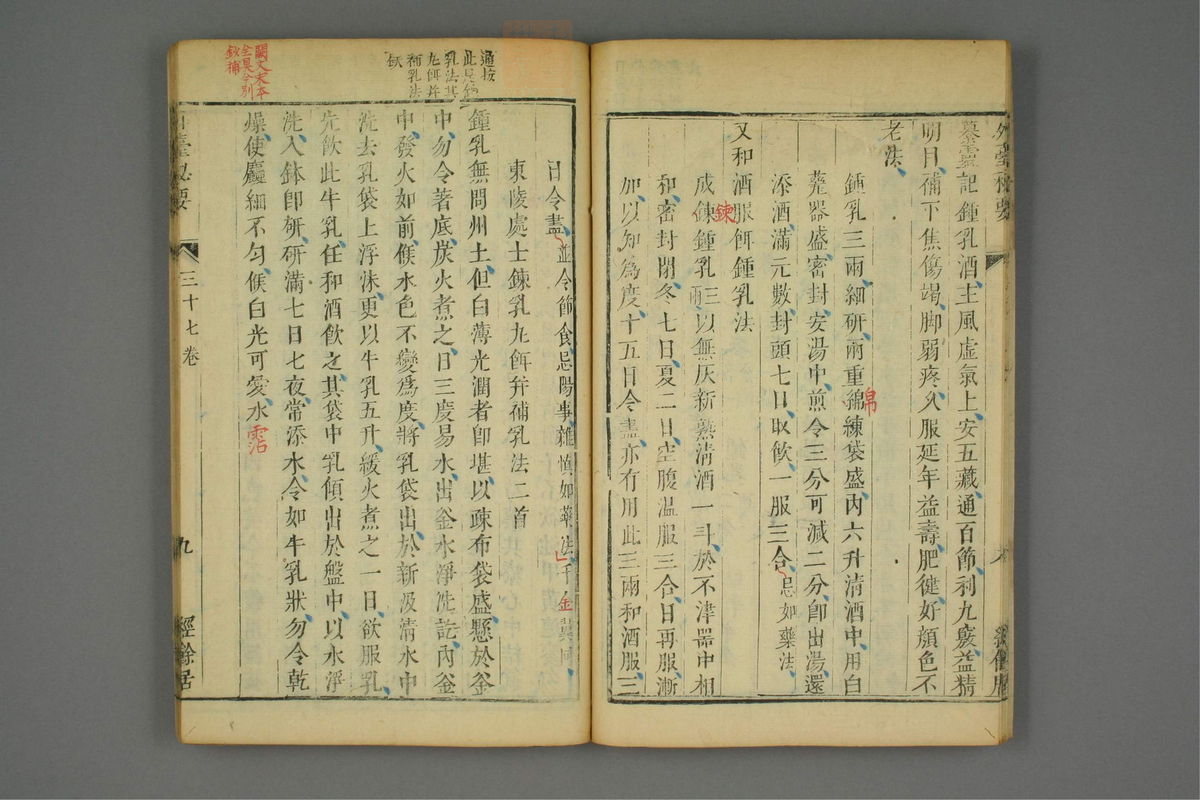 外臺祕要
纂靈記鍾乳酒主風虛氣上安五藏通百節利九竅益精
明目補下焦傷竭腳弱疼久服延年益壽肥健好顏色不
老法
鍾乳三兩細研兩重綿練袋盛內六升清酒中用白
帛
甆器盛密封安湯中煎令三分可減二分卽出湯還
添酒滿元數封頭七日取飲一服三合忌如藥法
又和酒服餌鍾乳法
鍊
成鍊鍾乳三兩以無灰新熟清酒一斗於不津器中相
和密封閉冬七日夏二日空腹溫服三合日再服漸
加以知爲度十五日令盡亦有用此三兩和酒服三
日令盡並令節食忌陽事雜慎如藥法千金翼同
通按
此是鍊
乳法其
丸餌并
補乳法
缺
東陵處士鍊乳丸餌并補乳法二首
鍾乳無問州土但白薄光潤者卽堪以疎布袋盛懸於釜
中勿令著底炭火煮之日三度易水出釜水淨洗訖內釜
中發火如前候水色不變爲度將乳袋出於新汲清水中
洗去乳袋上浮沫更以牛乳五升緩火煮之一日欲服乳
先飲此牛乳任和酒飲之其袋中乳傾出於盤中以水淨
洗入鉢卽研研滿七日七夜常添水令如牛乳狀勿令乾
燥使麤細不匀候白光可愛水
霑
闕文宋本
全具今別
鈔補
臺祕要
三十七卷
九
經餘居